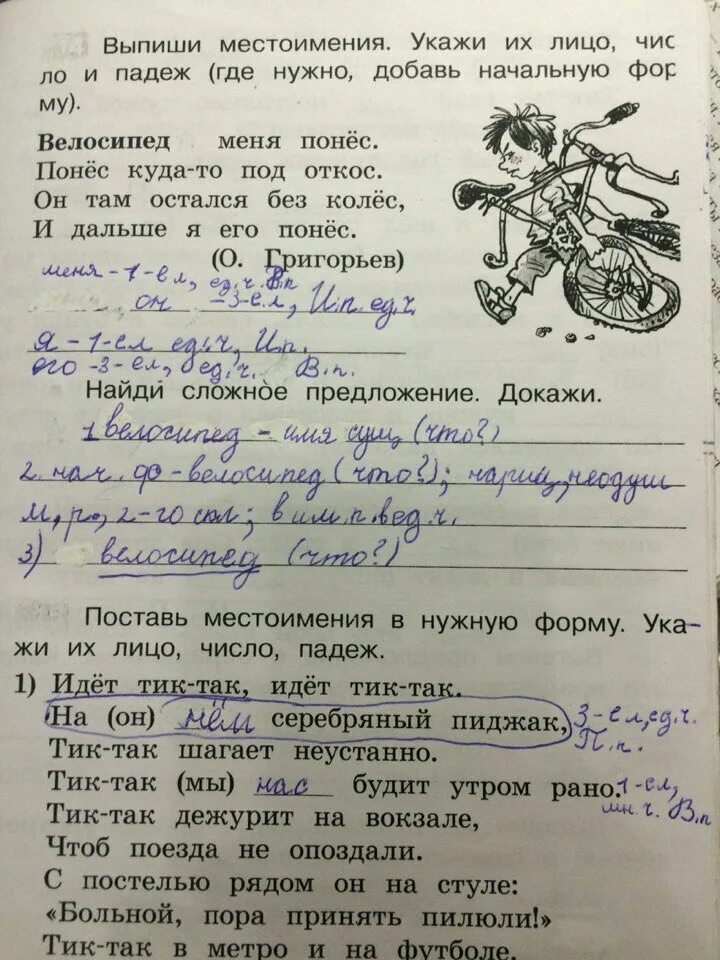 Выпиши местоимения. Укажи их лицо, чис
ло и падеж (где нужно, добавь начальную фор
му).
Велосипед меня понёс.
Понёс куда-то под откос.
Он там остался без колёс,
И дальше я его понёс.
(О. Григорьев)
меня - 1-е л, ед. ч. В.п
он - 3-е л, И.п. ед.ч.
я - 1-е л ед.ч, И.п.
его - 3-е л, ед.ч. В.п.
Найди сложное предложение. Докажи.
1 велосипед - имя сущ, (что?)
2. нач. ф - велосипед (что?); нариц, неодуш
м, р., 2-го скл; в им. п. в ед. ч.
3) велосипед (что?)
Поставь местоимения в нужную форму. Ука-
жи их лицо, число, падеж.
1) Идёт тик-так, идёт тик-так.
На (он) нём серебряный пиджак, 3-е л, ед. ч.
П.п.
Тик-так шагает неустанно.
Тик-так (мы) нас будит утром рано. 1-е л,
мн ч. В.п
Тик-так дежурит на вокзале,
Чтоб поезда не опоздали.
С постелью рядом он на стуле:
«Больной, пора принять пилюли!»
Тик-так в метро и на футболе,